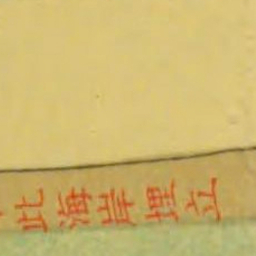 此海岸埋立